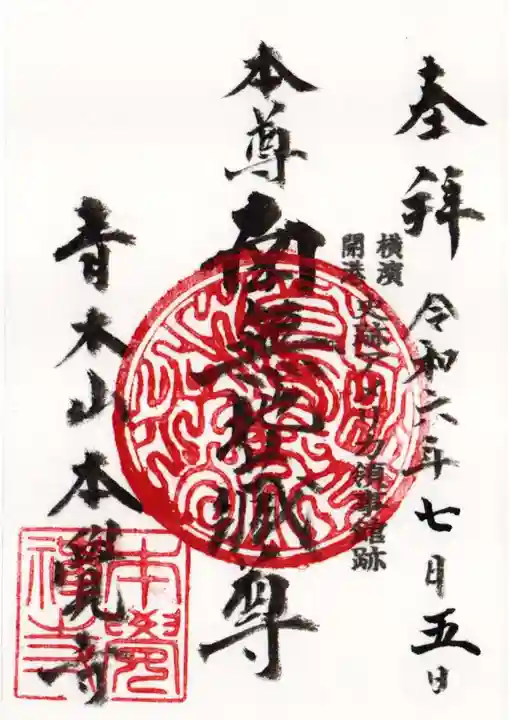 奉拜
令和六年七月五日
横濱
開港
史跡アメリカ領事館跡
本尊
南無地蔵尊
青木山本覺寺
本覺禅寺